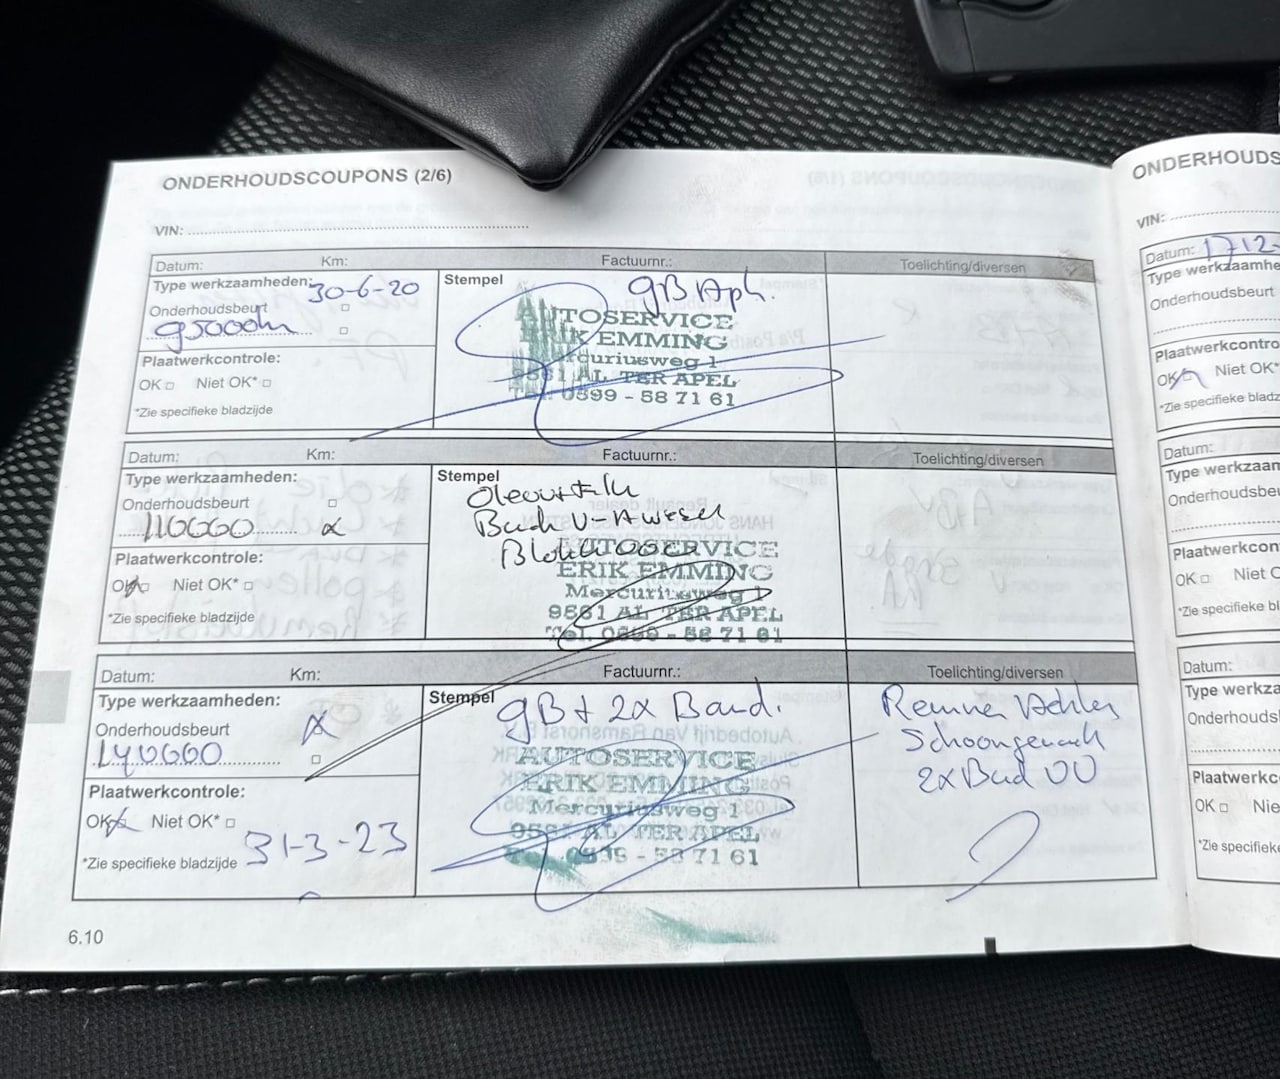 ONDERHOUDSCOUPONS (2/6)
VIN:
Datum: Km: Factuurnr.: Toelichting/diversen
Type werkzaamheden: 30-6-20
Stempel
Onderhoudsbeurt
95000km
gB Aph.
AUTOSERVICE
ERIK EMMING
Mercuriusweg 1
9561 AL TER APEL
Tel. 0599 - 58 71 61
Plaatwerkcontrole:
OK Niet OK*
*Zie specifieke bladzijde
Datum: Km: Factuurnr.: Toelichting/diversen
Type werkzaamheden:
Stempel
Onderhoudsbeurt
110000
AUTOSERVICE
ERIK EMMING
Mercuriusweg 1
9561 AL TER APEL
Tel. 0599 - 58 71 61
Plaatwerkcontrole:
OK Niet OK*
*Zie specifieke bladzijde
Datum: Km: Factuurnr.: Toelichting/diversen
Type werkzaamheden:
Stempel
Onderhoudsbeurt
140000
gB + 2x Band.
AUTOSERVICE
ERIK EMMING
Mercuriusweg 1
9561 AL TER APEL
Tel. 0599 - 58 71 61
Remmen
2x Band VV
Plaatwerkcontrole:
OK Niet OK*
*Zie specifieke bladzijde 31-3-23
6.10
ONDERHOUDS
VIN:
Datum: 1712-
Type werkzaamhe
Onderhoudsbeurt
Plaatwerkcontro
OK Niet OK*
*Zie specifieke bladz
Datum:
Type werkzaam
Onderhoudsbeu
Plaatwerkcon
OK Niet O
*Zie specifieke bl
Datum:
Type werkza
Onderhouds
Plaatwerkc
OK Nie
*Zie specifieke